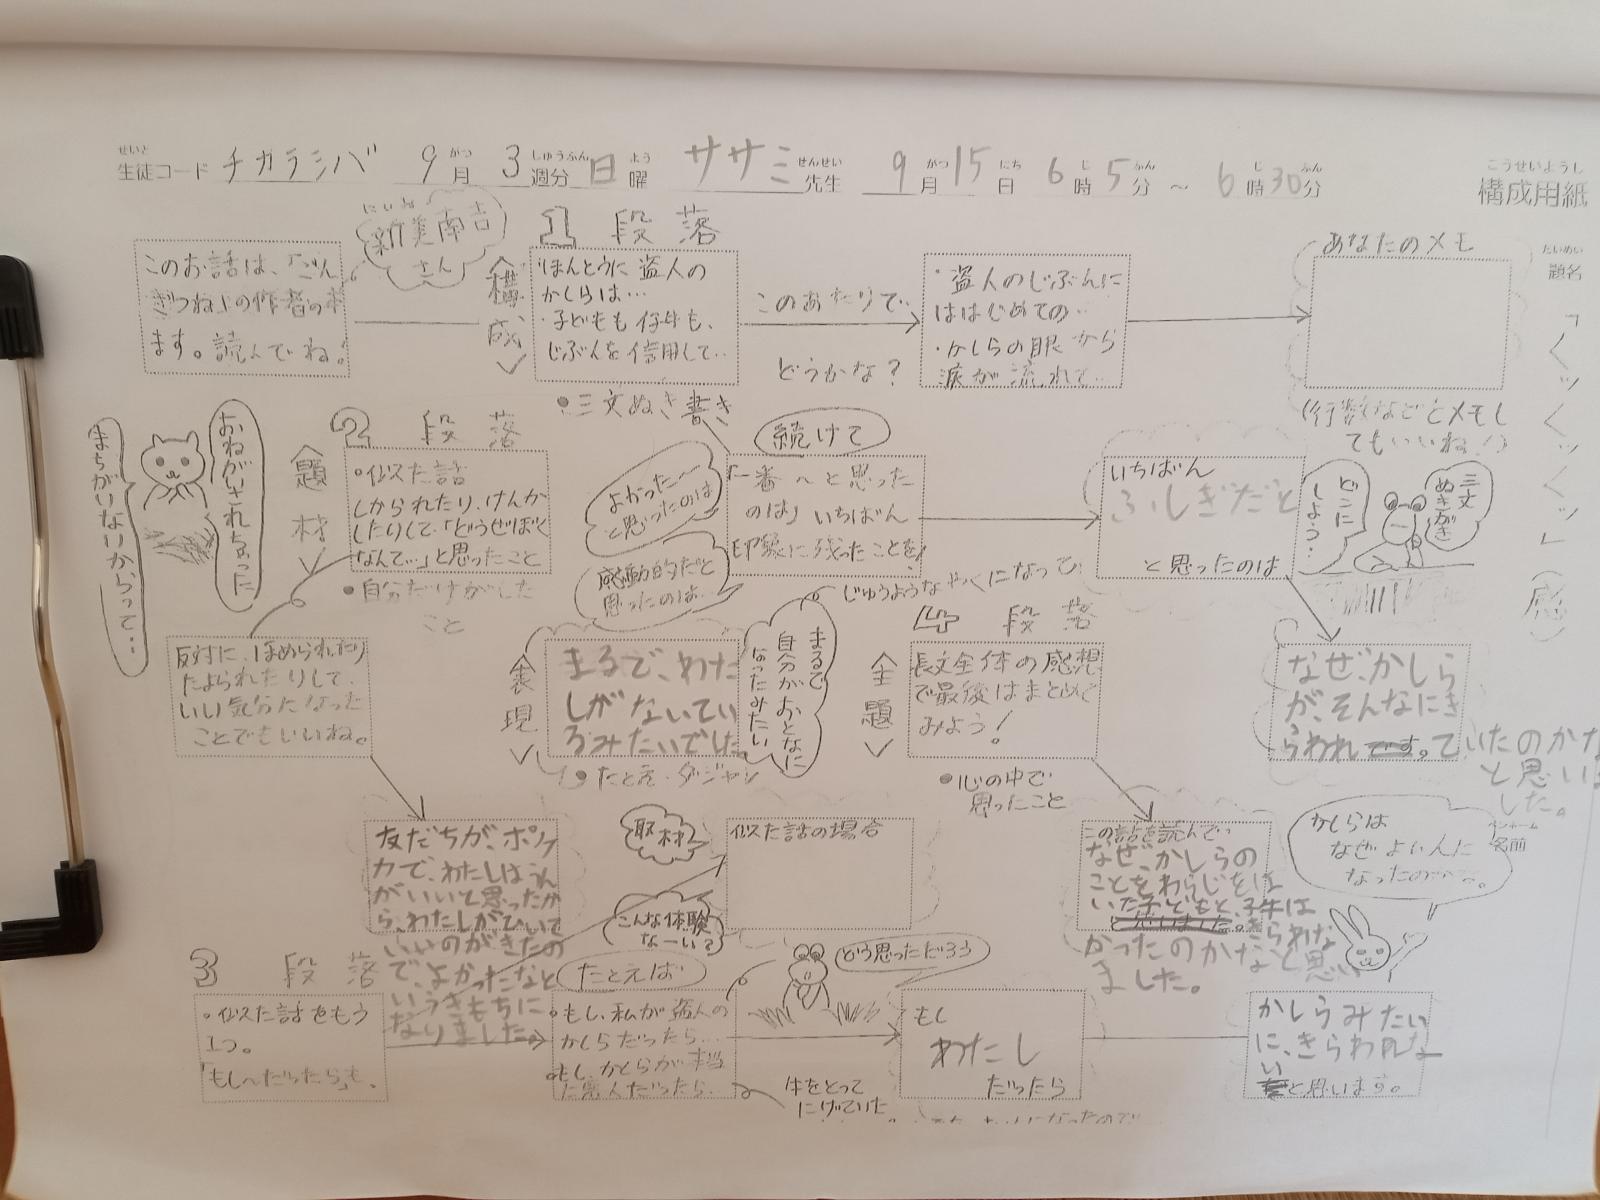 せいと がつ しゅうぶん よう せんせい がつ にち じ ふん じ ふん
生徒コード チカラシバ 9月 3週分 日曜 ササミ先生 9月15日 6時5分 ~ 6時30分
こうせいようし
構成用紙
だいめい
題名
「くッくッくッ」(感)
このお話は、「ごん
ぎつね」の作者の
ます。読んでね!
にいみ
新美南吉
さん
1 段落
〈構成〉
ほんとうに盗人の
かしらは…
・子どもも仔牛も、
じぶんを信用して…
このあたりで、
どうかな?
・盗人のじぶんに
ははじめての…
・かしらの眼から
涙が流れて…
あなたのメモ
(行数などとメモし
てもいいね!)
●三文ぬき書き
続けて
「一番〜と思った
のは」いちばん
印象に残ったことを!
よかった〜
と思ったのは
感動的だと
思ったのは…
いちばん
ふしぎだと
と思ったのは
三文
ぬきがき
どこに
しよう…
なぜ、かしら
が、そんなにき
らわれです。ていたのかな
と思いま
した。
2 段落
〈題材〉
おねがいされちゃった
まちがいなりからって…
・似た話
しかられたり、けんか
したりして、「どうせぼく
なんて…」と思ったこと
●自分だけがした
こと
反対に、ほめられたり
たよられたりして、
いい気分になった
ことでもいいね。
友だちが、ポケ
カで、わたしはうん
がいいと思ったか
ら、わたしがひいて
いいのがきたの
で、よかったなと
いうきもちに
なりました。
〈表現〉
まるで、わた
しがないてい
るみたいでした
●たとえ・ダジャレ
まるで
自分がおとなに
なったみたい
じゅうようなやくになって
取材
こんな体験
なーい?
似た話の場合
3 段落
・似た話をもう
1つ。
「もし〜だったら」も、
たとえば
・もし、私が盗人の
かしらだったら…
・もし、かしらが本当
に悪人だったら…
牛をとって
にげていた
どう思っただろう
もし
わたし
だったら
かしらみたい
に、きらわれな
い
と思います。
4 段落
〈主題〉
長文全体の感想
で最後はまとめて
みよう!
●心の中で
思ったこと
この話を読んで…
なぜ、かしらの
ことをわらじをは
いた子どもと、子牛は
と思いました。きらわな
かったのかなと思い
ました。
かしらは
なぜよい人に
なったの〜。
ペンネーム
名前